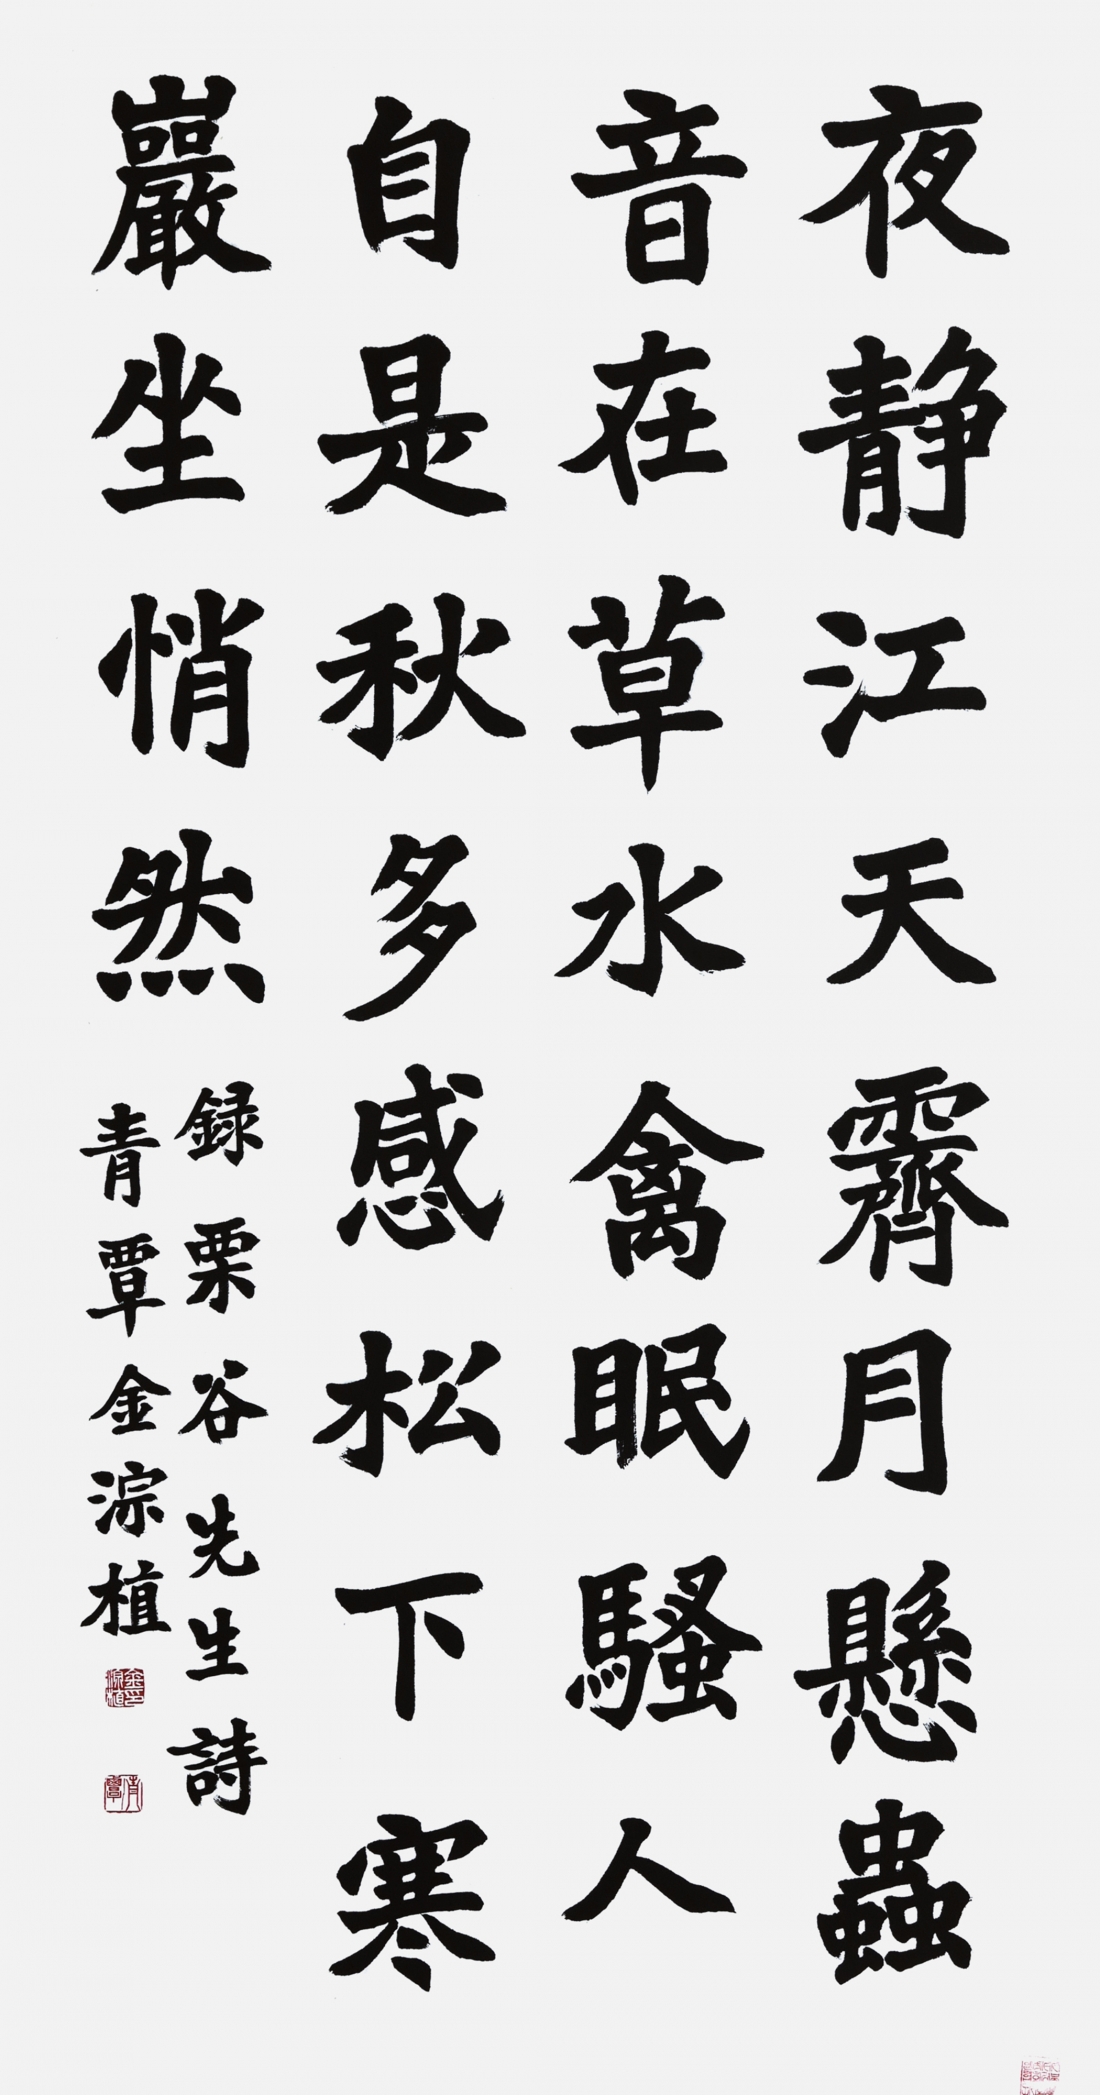 夜静江天霽月懸蟲
音在草水禽眠騷人
自是秋多感松下寒
巖坐悄然
録栗谷先生詩
青覃金淙植